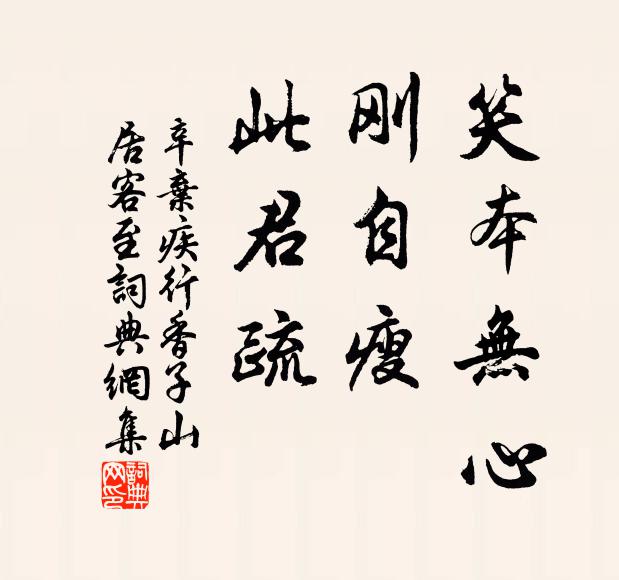 笑本無心
刚自瘦
此君疏
辛棄疾行香子山
居客至詞典網集
詞典
网印